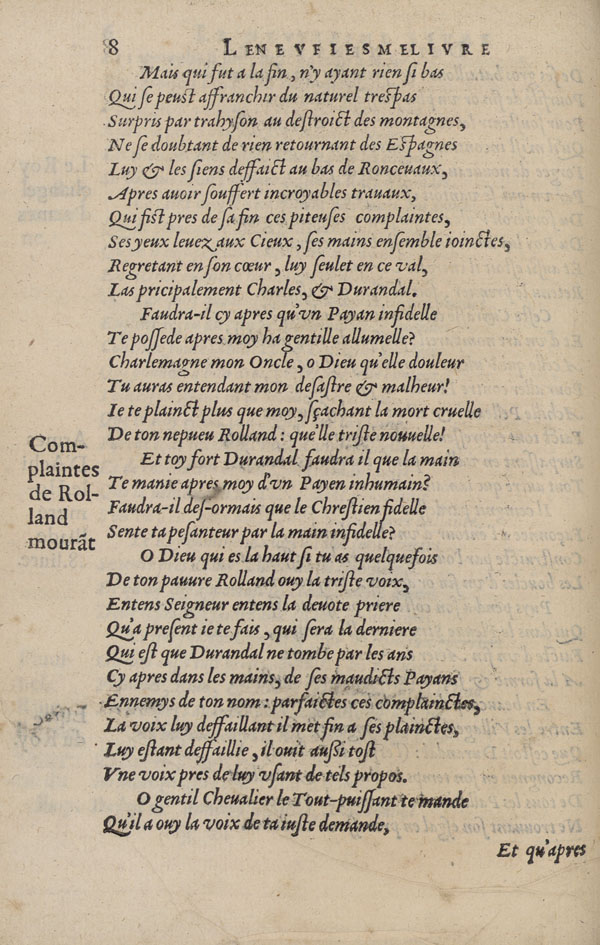 8 LE NEVFIESME LIVRE
Mais qui fut a la fin, n'y ayant rien si bas
Qui se peust affranchir du naturel trespas
Surpris par trahyson au destroict des montagnes,
Ne se doubtant de rien retournant des Espagnes
Luy & les siens deffaict au bas de Ronceuaux,
Apres auoir souffert incroyables trauaux,
Qui fist pres de sa fin ces piteuses complaintes,
Ses yeux leuez aux Cieux, ses mains ensemble ioinctes,
Regretant en son cœur, luy seulet en ce val,
Las pricipalement Charles, & Durandal.
Faudra-il cy apres qu'vn Payan infidelle
Te possede apres moy ha gentille allumelle?
Charlemagne mon Oncle, o Dieu qu'elle douleur
Tu auras entendant mon desastre & malheur!
Ie te plainct plus que moy, sçachant la mort cruelle
De ton nepueu Rolland : que'lle triste nouuelle!
Et toy fort Durandal faudra il que la main
Te manie apres moy d'vn Payen inhumain?
Faudra-il des-ormais que le Chrestien fidelle
Sente ta pesanteur par la main infidelle?
Com-
plaintes
de Rol-
land
mourãt
O Dieu qui es la haut si tu as quelquefois
De ton pauure Rolland ouy la triste voix,
Entens Seigneur entens la deuote priere
Qu'a present ie te fais, qui sera la derniere
Qui est que Durandal ne tombe par les ans
Cy apres dans les mains, de ses maudicts Payans
Ennemys de ton nom : parfaictes ces complainctes,
La voix luy deffaillant il met fin a ses plainctes,
Luy estant deffaillie, il ouit aussi tost
Vne voix pres de luy vsant de tels propos.
O gentil Cheualier le Tout-puissant te mande
Qu'il a ouy la voix de ta iuste demande,
Et qu'apres